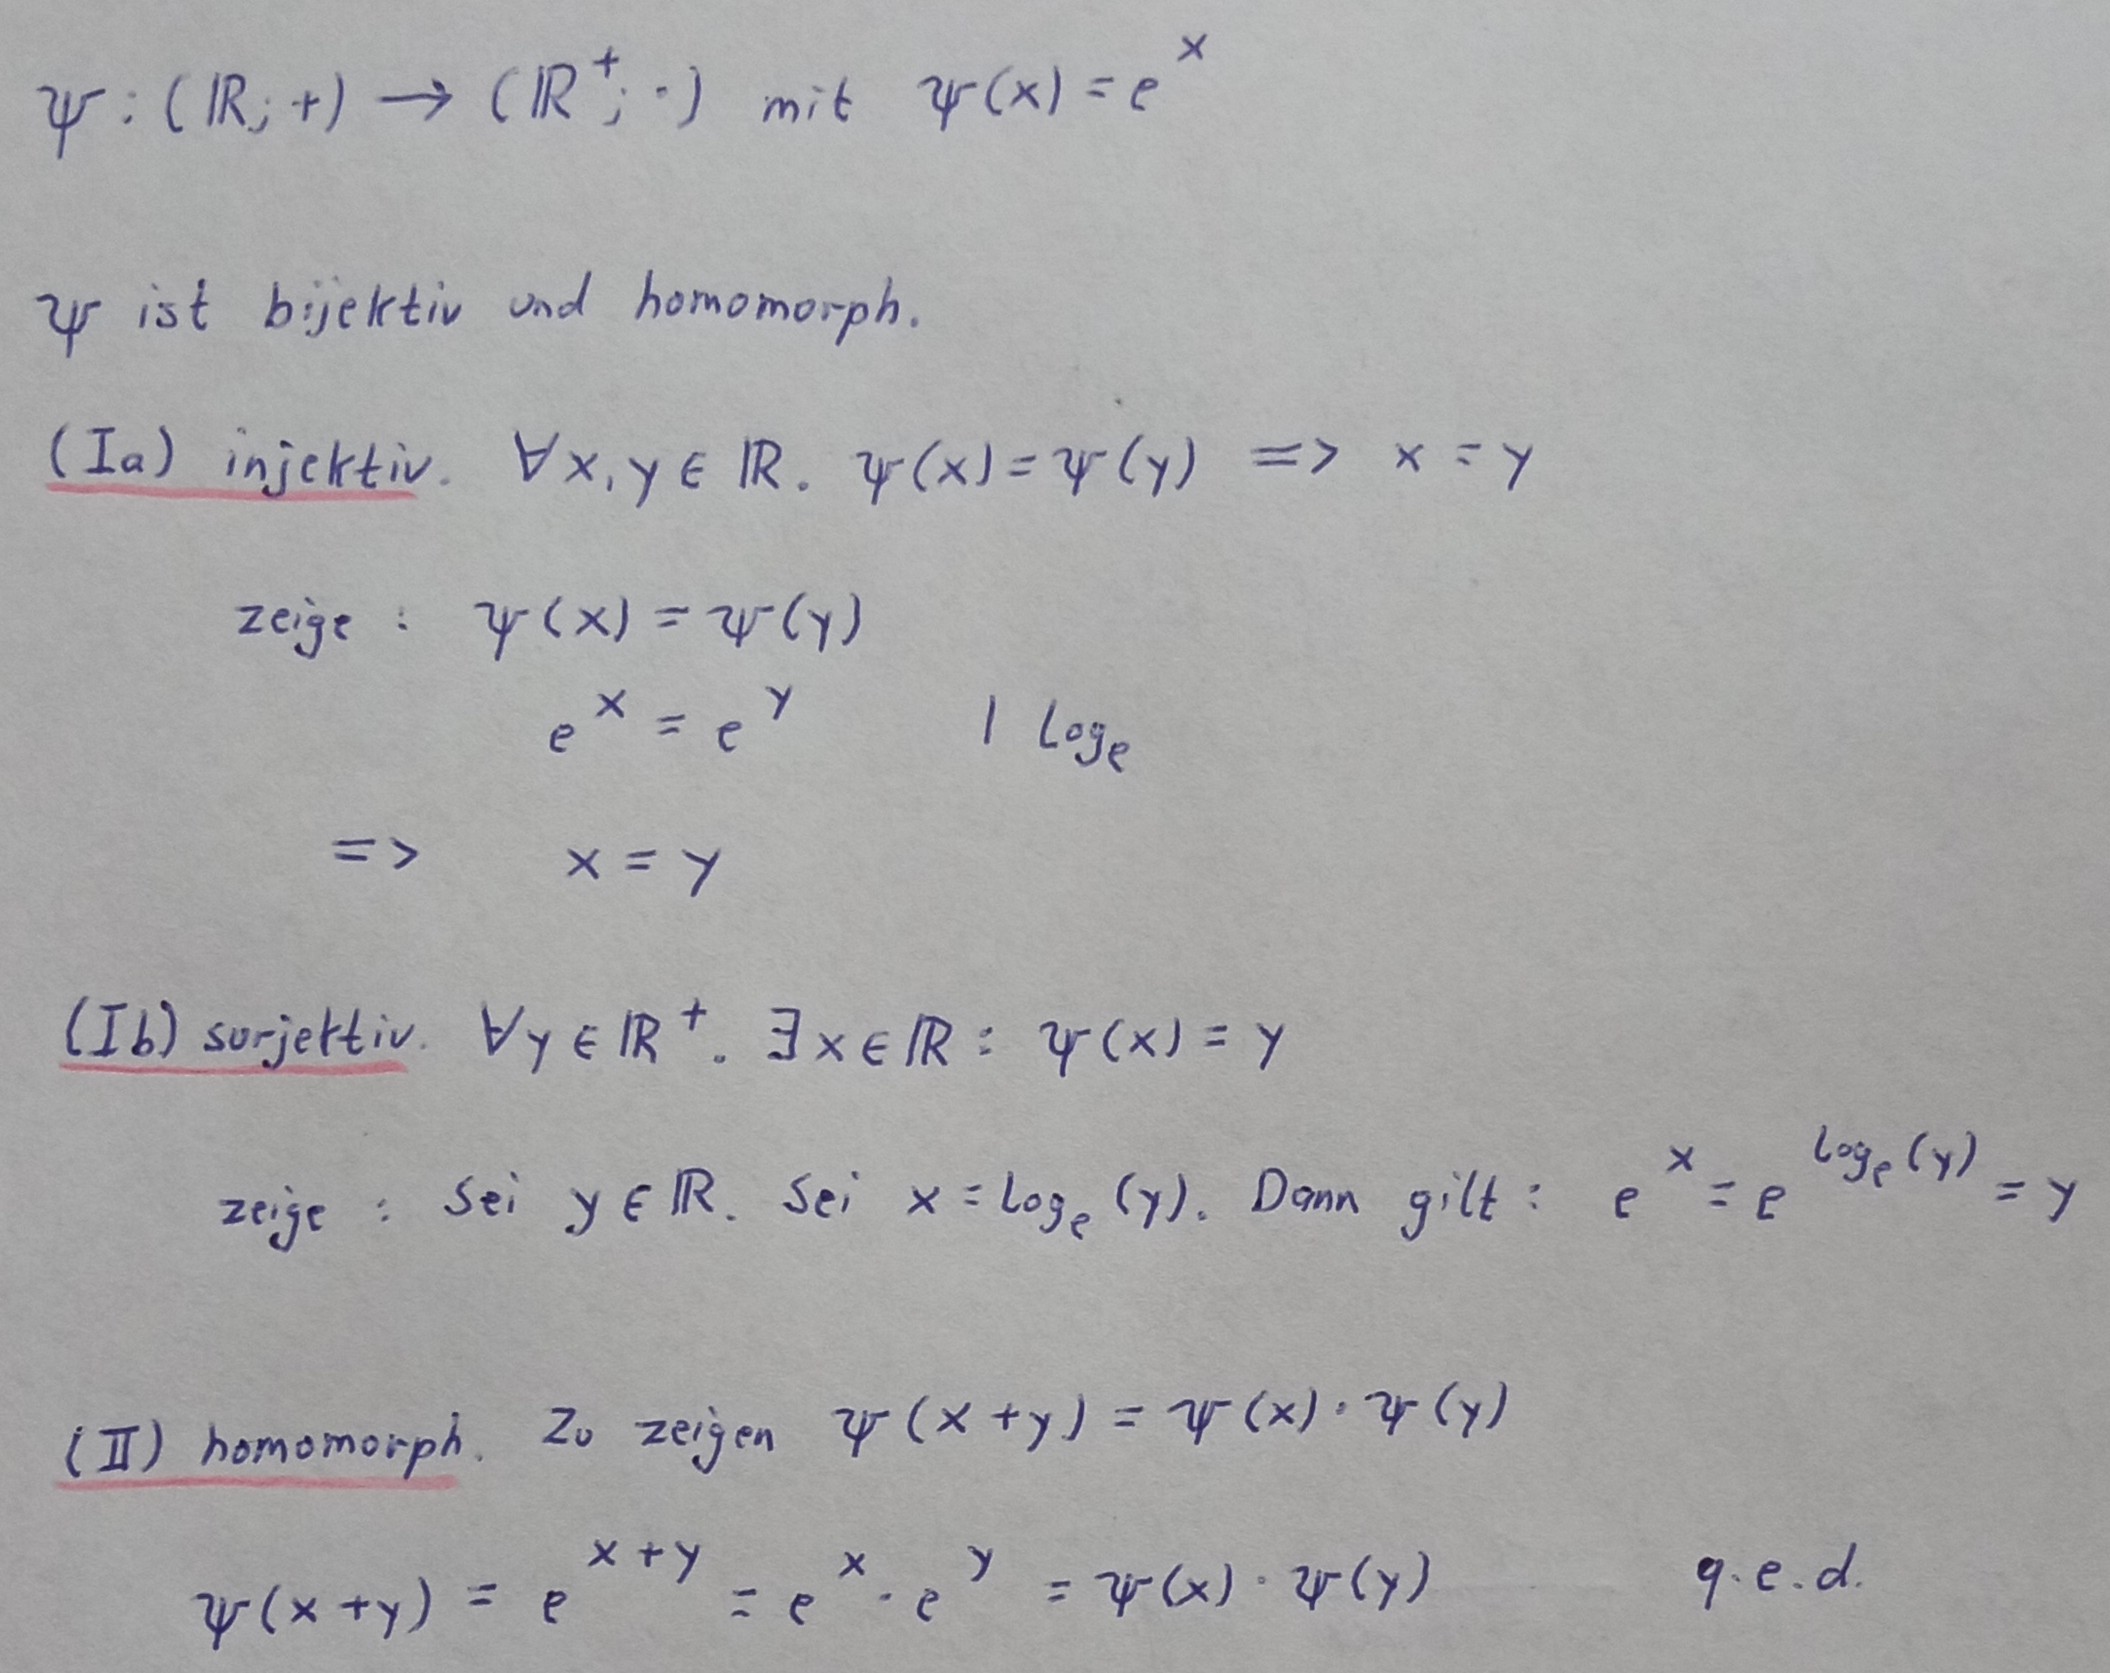 ψ : (ℝ; +) → (ℝ⁺; ·) mit ψ(x) = eˣ
ψ ist bijektiv und homomorph.
(Ia) injektiv. ∀x, y ∈ ℝ. ψ(x) = ψ(y) => x = y
zeige : ψ(x) = ψ(y)
eˣ = eʸ | logₑ
=> x = y
(Ib) surjektiv. ∀y ∈ ℝ⁺. ∃x ∈ ℝ : ψ(x) = y
zeige : Sei y ∈ ℝ. Sei x = logₑ(y). Dann gilt : eˣ = e^logₑ(y) = y
(II) homomorph. Zu zeigen ψ(x + y) = ψ(x) · ψ(y)
ψ(x + y) = eˣ⁺ʸ = eˣ · eʸ = ψ(x) · ψ(y) q.e.d.